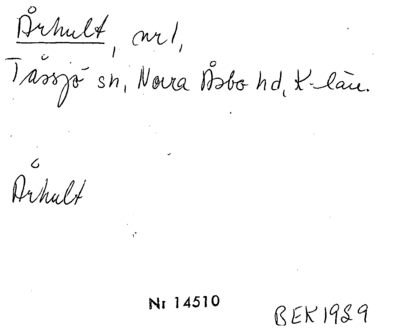 Århult, nr 1,
Tåssjö sn, Norra Åsbo hd, K-län.
Århult
Nr 14510
BEK1989